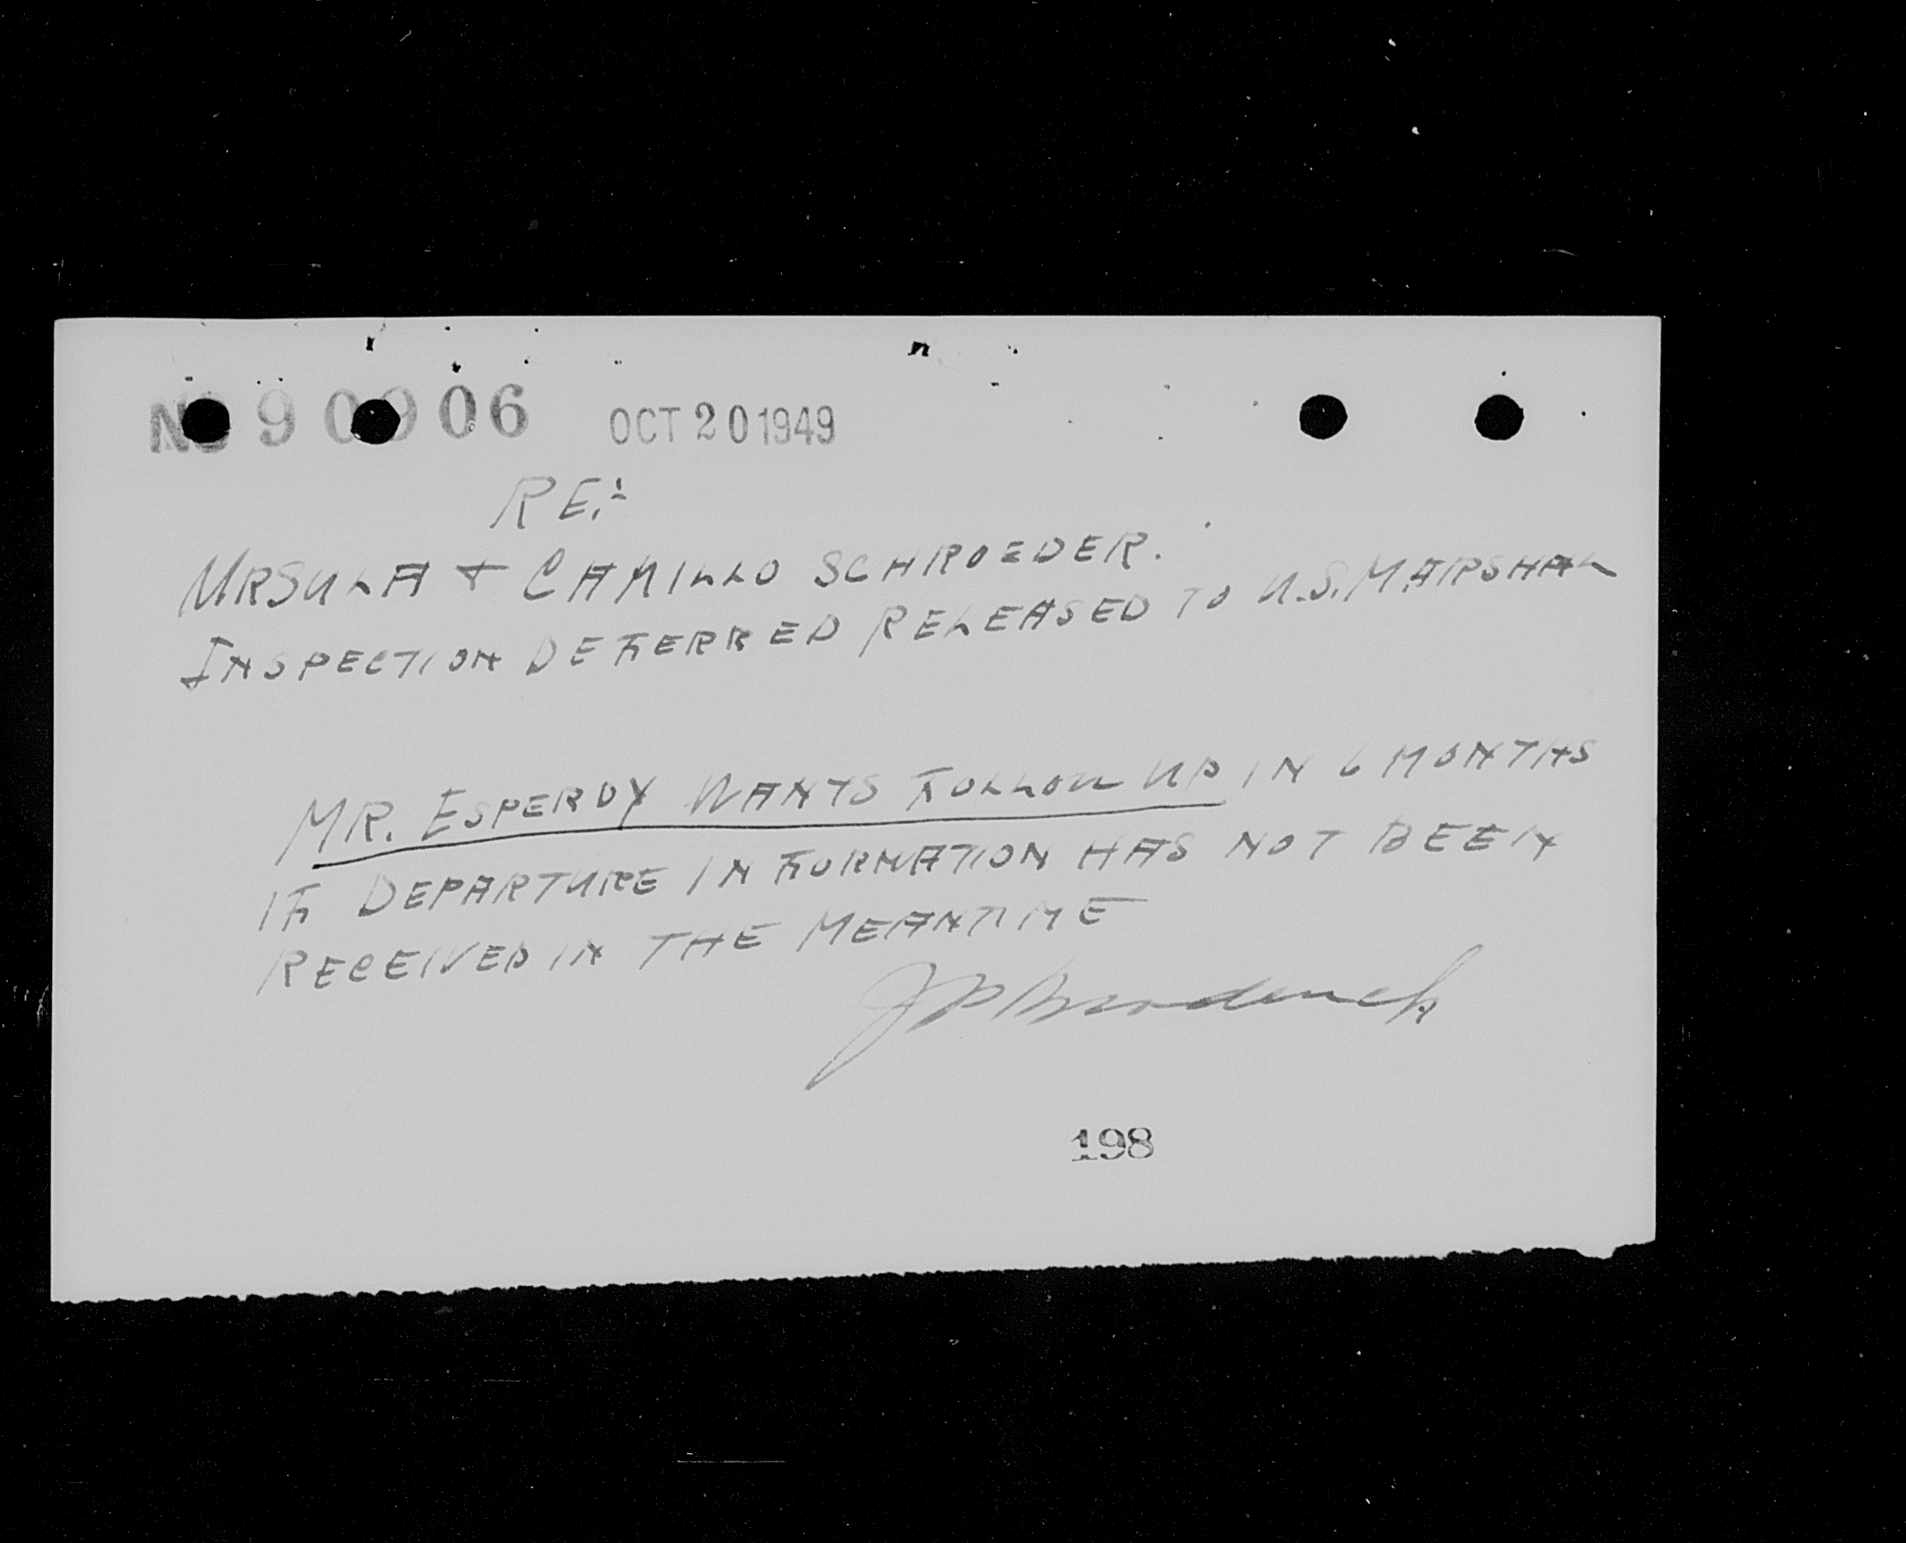 No 90906 OCT 20 1949
RE:-
URSULA & CAMILLO SCHROEDER.
INSPECTION DEFERRED RELEASED TO U.S. MARSHAL
MR. ESPERDY WANTS FOLLOW UP IN 6 MONTHS
IF DEPARTURE INFORMATION HAS NOT BEEN
RECEIVED IN THE MEANTIME
JP Broderick
198